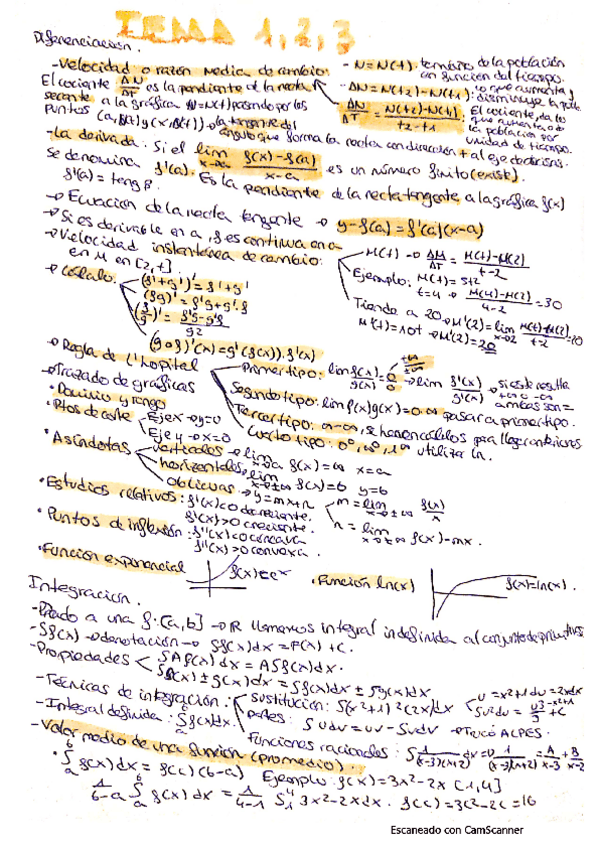 TEMA 1,2,3
Diferenciación.
-Velocidad o razón media de cambio:
El cociente ΔN/ΔT es la pendiente de la recta
secante a la gráfica N=N(t) pasando por los
puntos
- N=N(t): tamaño de la población
en función del tiempo.
- ΔN=N(t2)-N(t1): lo que aumenta y
disminuye la
ΔN/ΔT = N(t2)-N(t1)/t2-t1
El cociente, da lo
que aumenta o de
la población por
unidad de tiempo.
ángulo que forma la recta con dirección + al eje de abcisas.
-la derivada: Si el lim x→a f(x)-f(a)/x-a es un número finito (existe).
se denomina f'(a). Es la pendiente de la recta tangente a la gráfica f(x)
f'(a) = teng β.
→ Ecuación de la recta tangente → y-f(a)=f'(a)(x-a)
→ Si es derivable en a, f es continua en a
→ Velocidad instantánea de cambio:
en M en [2,t].
M(t) → ΔM/ΔT = M(t)-M(2)/t-2
Ejemplo: M(t)=5t2
t=4 → M(4)-M(2)/4-2 = 30
Tiende a 20 → M'(2)=lim t→2 M(t)-M(2)/t-2 = 20
M'(t)=10t → M'(2)=20
→ Cálculo:
(f+g)'=f'+g'
(fg)'=f'g+g'f
(f/g)'=f'g-g'f/g2
(g∘f)'(x)=g'(f(x)).f'(x)
→ Regla de L'hopital
Primer tipo: lim f(x)/g(x) = 0/0 → lim f'(x)/g'(x) → si este resulta
+∞ o -∞
ambas son =
Segundo tipo: lim f(x)g(x)=0·∞ pasar a primer tipo.
Tercer tipo: ∞-∞, se hacen cálculos para llegar
Cuarto tipo: 0⁰, ∞⁰, 1^∞ utilizar ln.
→ Trazado de gráficas
• Dominio y rango
• Ptos de corte
Eje x → y=0
Eje y → x=0
• Asíntotas
verticales → lim x→a f(x)=∞ x=a
horizontales → lim x→±∞ f(x)=b y=b
oblicuas → y=mx+n
m=lim x→±∞ f(x)/x
n=lim x→±∞ f(x)-mx.
• Estudios relativos: f'(x)<0 decreciente.
f'(x)>0 creciente.
• Puntos de inflexión: f''(x)<0 concava
f''(x)>0 convexa.
• Función exponencial
f(x)=e^x
• Función ln(x)
f(x)=ln(x).
Integración.
-Dado a una f:[a,b] → R llamamos integral indefinida al conjunto de primitivas
-∫f(x) → denotación → ∫f(x)dx=F(x)+C.
-Propiedades
∫Af(x)dx = A∫f(x)dx.
∫f(x)±g(x)dx=∫f(x)dx ± ∫g(x)dx
-Técnicas de integración:
sustitución: ∫(x²+1)²(2x)dx
u=x²+1 du=2xdx
∫u²du = u³/3 +C
partes: ∫udv=uv-∫vdu → TRUCO ALPES.
Funciones racionales: ∫1/(x-3)(x+2) dx → 1/(x-3)(x+2) = A/x-3 + B/x-2
-Integral definida: ∫ₐᵇ f(x)dx.
-Valor medio de una función (promedio).
• ∫ₐᵇ f(x)dx = f(c)(b-a) Ejemplo: f(x)=3x²-2x [1,4]
1/b-a ∫ₐᵇ f(x)dx = 1/4-1 ∫₁⁴ 3x²-2xdx. f(c)=3c²-2c=16
Escaneado con CamScanner